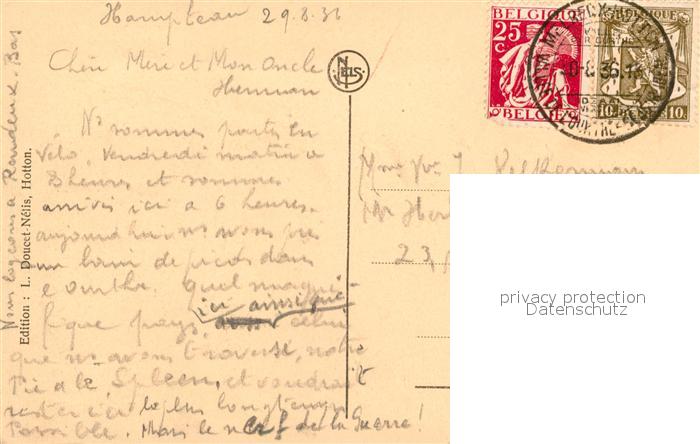 Hampteau 29.8.36
Chère Mère et Mon Oncle
Herman
Ns sommes partis en
Vélo, Vendredi matin a
8 heures et sommes
arrivés ici a 6 heures.
aujourd'hui ns avons pris
un bain de pieds dans
l'ourthe. quel magni-
fique pays, ici ainsi que celui
que ns avons traversé, notre
Pié a le Spleen, et voudrait
rester ici le plus longtemps
Possible. Mais le nerf de la Guerre!
Nous logeons a Rendeux-Bas
Edition : L. Doucet-Nélis, Hotton.
NELS
BELGIQUE
25 c
BELGIE
BELGIQUE
10 10
Mme Vve
Mr Her
23,
privacy protection
Datenschutz